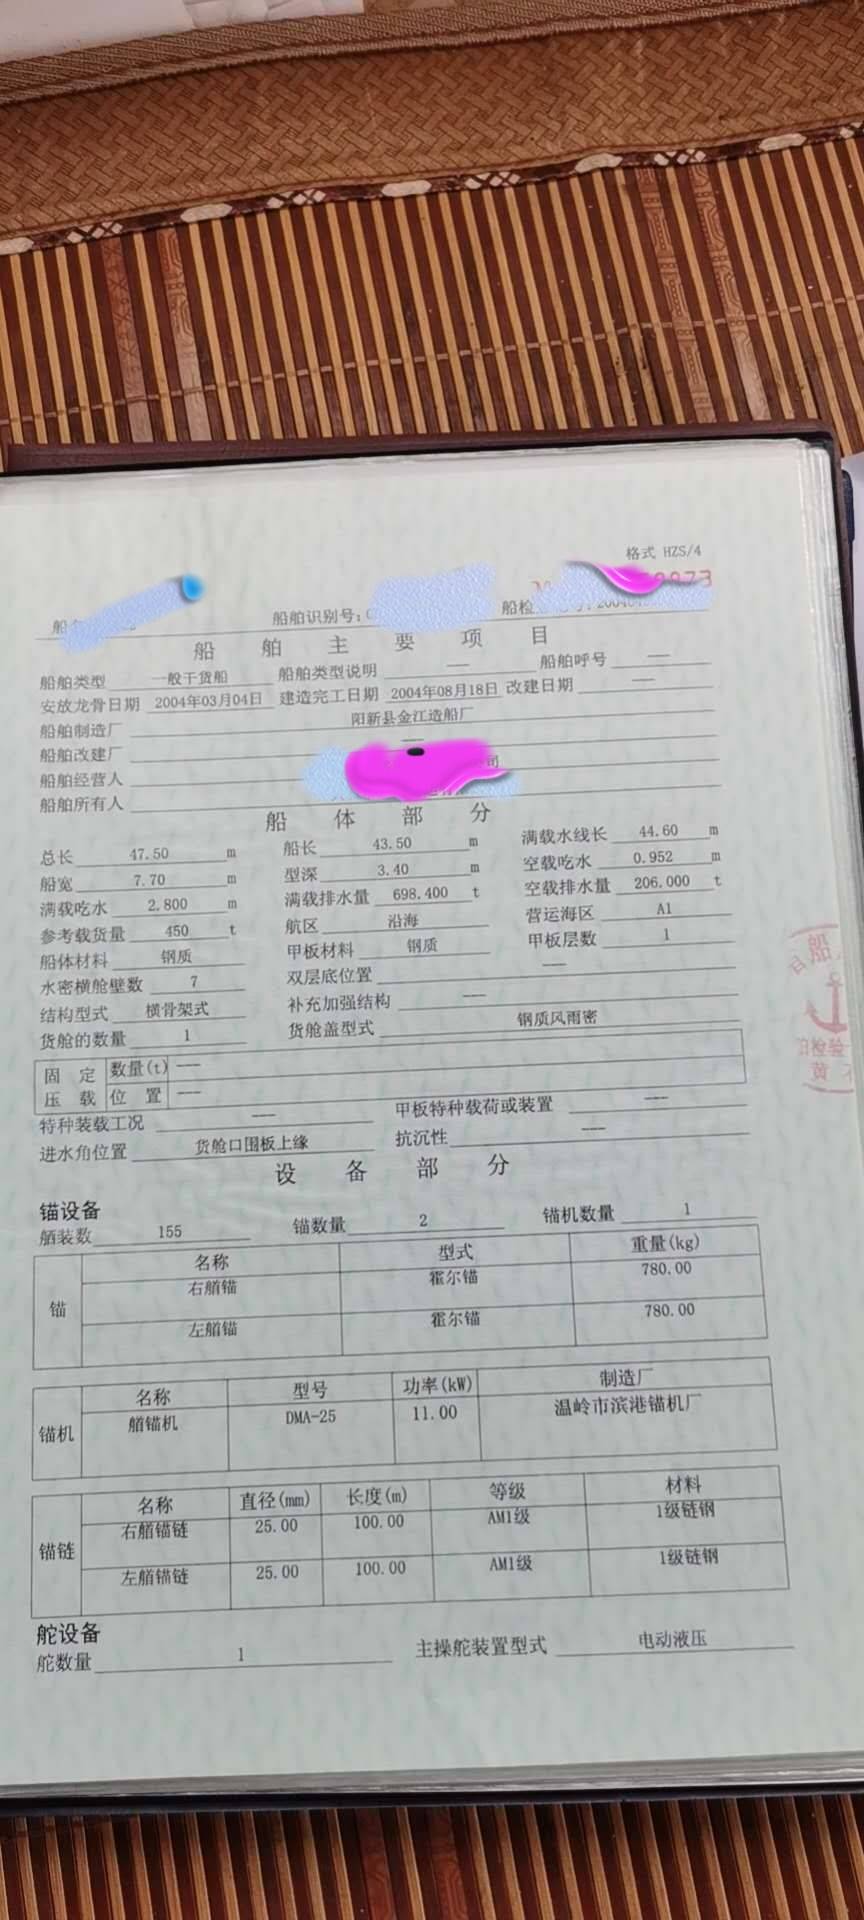 格式 HZS/4
船舶识别号:
船检
船舶主要项目
船舶类型 一般干货船 船舶类型说明 —— 船舶呼号 ——
安放龙骨日期 2004年03月04日 建造完工日期 2004年08月18日 改建日期 ——
船舶制造厂 阳新县金江造船厂
船舶改建厂 ——
船舶经营人 司
船舶所有人
船体部分
总长 47.50 m 船长 43.50 m 满载水线长 44.60 m
船宽 7.70 m 型深 3.40 m 空载吃水 0.952 m
满载吃水 2.800 m 满载排水量 698.400 t 空载排水量 206.000 t
参考载货量 450 t 航区 沿海 营运海区 A1
船体材料 钢质 甲板材料 钢质 甲板层数 1
水密横舱壁数 7 双层底位置 ——
结构型式 横骨架式 补充加强结构 ---
货舱的数量 1 货舱盖型式 钢质风雨密
固定压载 数量(t) ---
位置 ---
特种装载工况 --- 甲板特种载荷或装置 ---
进水角位置 货舱口围板上缘 抗沉性 ---
设备部分
锚设备
舾装数 155 锚数量 2 锚机数量 1
锚 名称 型式 重量(kg)
右艏锚 霍尔锚 780.00
左艏锚 霍尔锚 780.00
锚机 名称 型号 功率(kW) 制造厂
艏锚机 DMA-25 11.00 温岭市滨港锚机厂
锚链 名称 直径(mm) 长度(m) 等级 材料
右艏锚链 25.00 100.00 AM1级 1级链钢
左艏锚链 25.00 100.00 AM1级 1级链钢
舵设备
舵数量 1 主操舵装置型式 电动液压
船
检验
黄